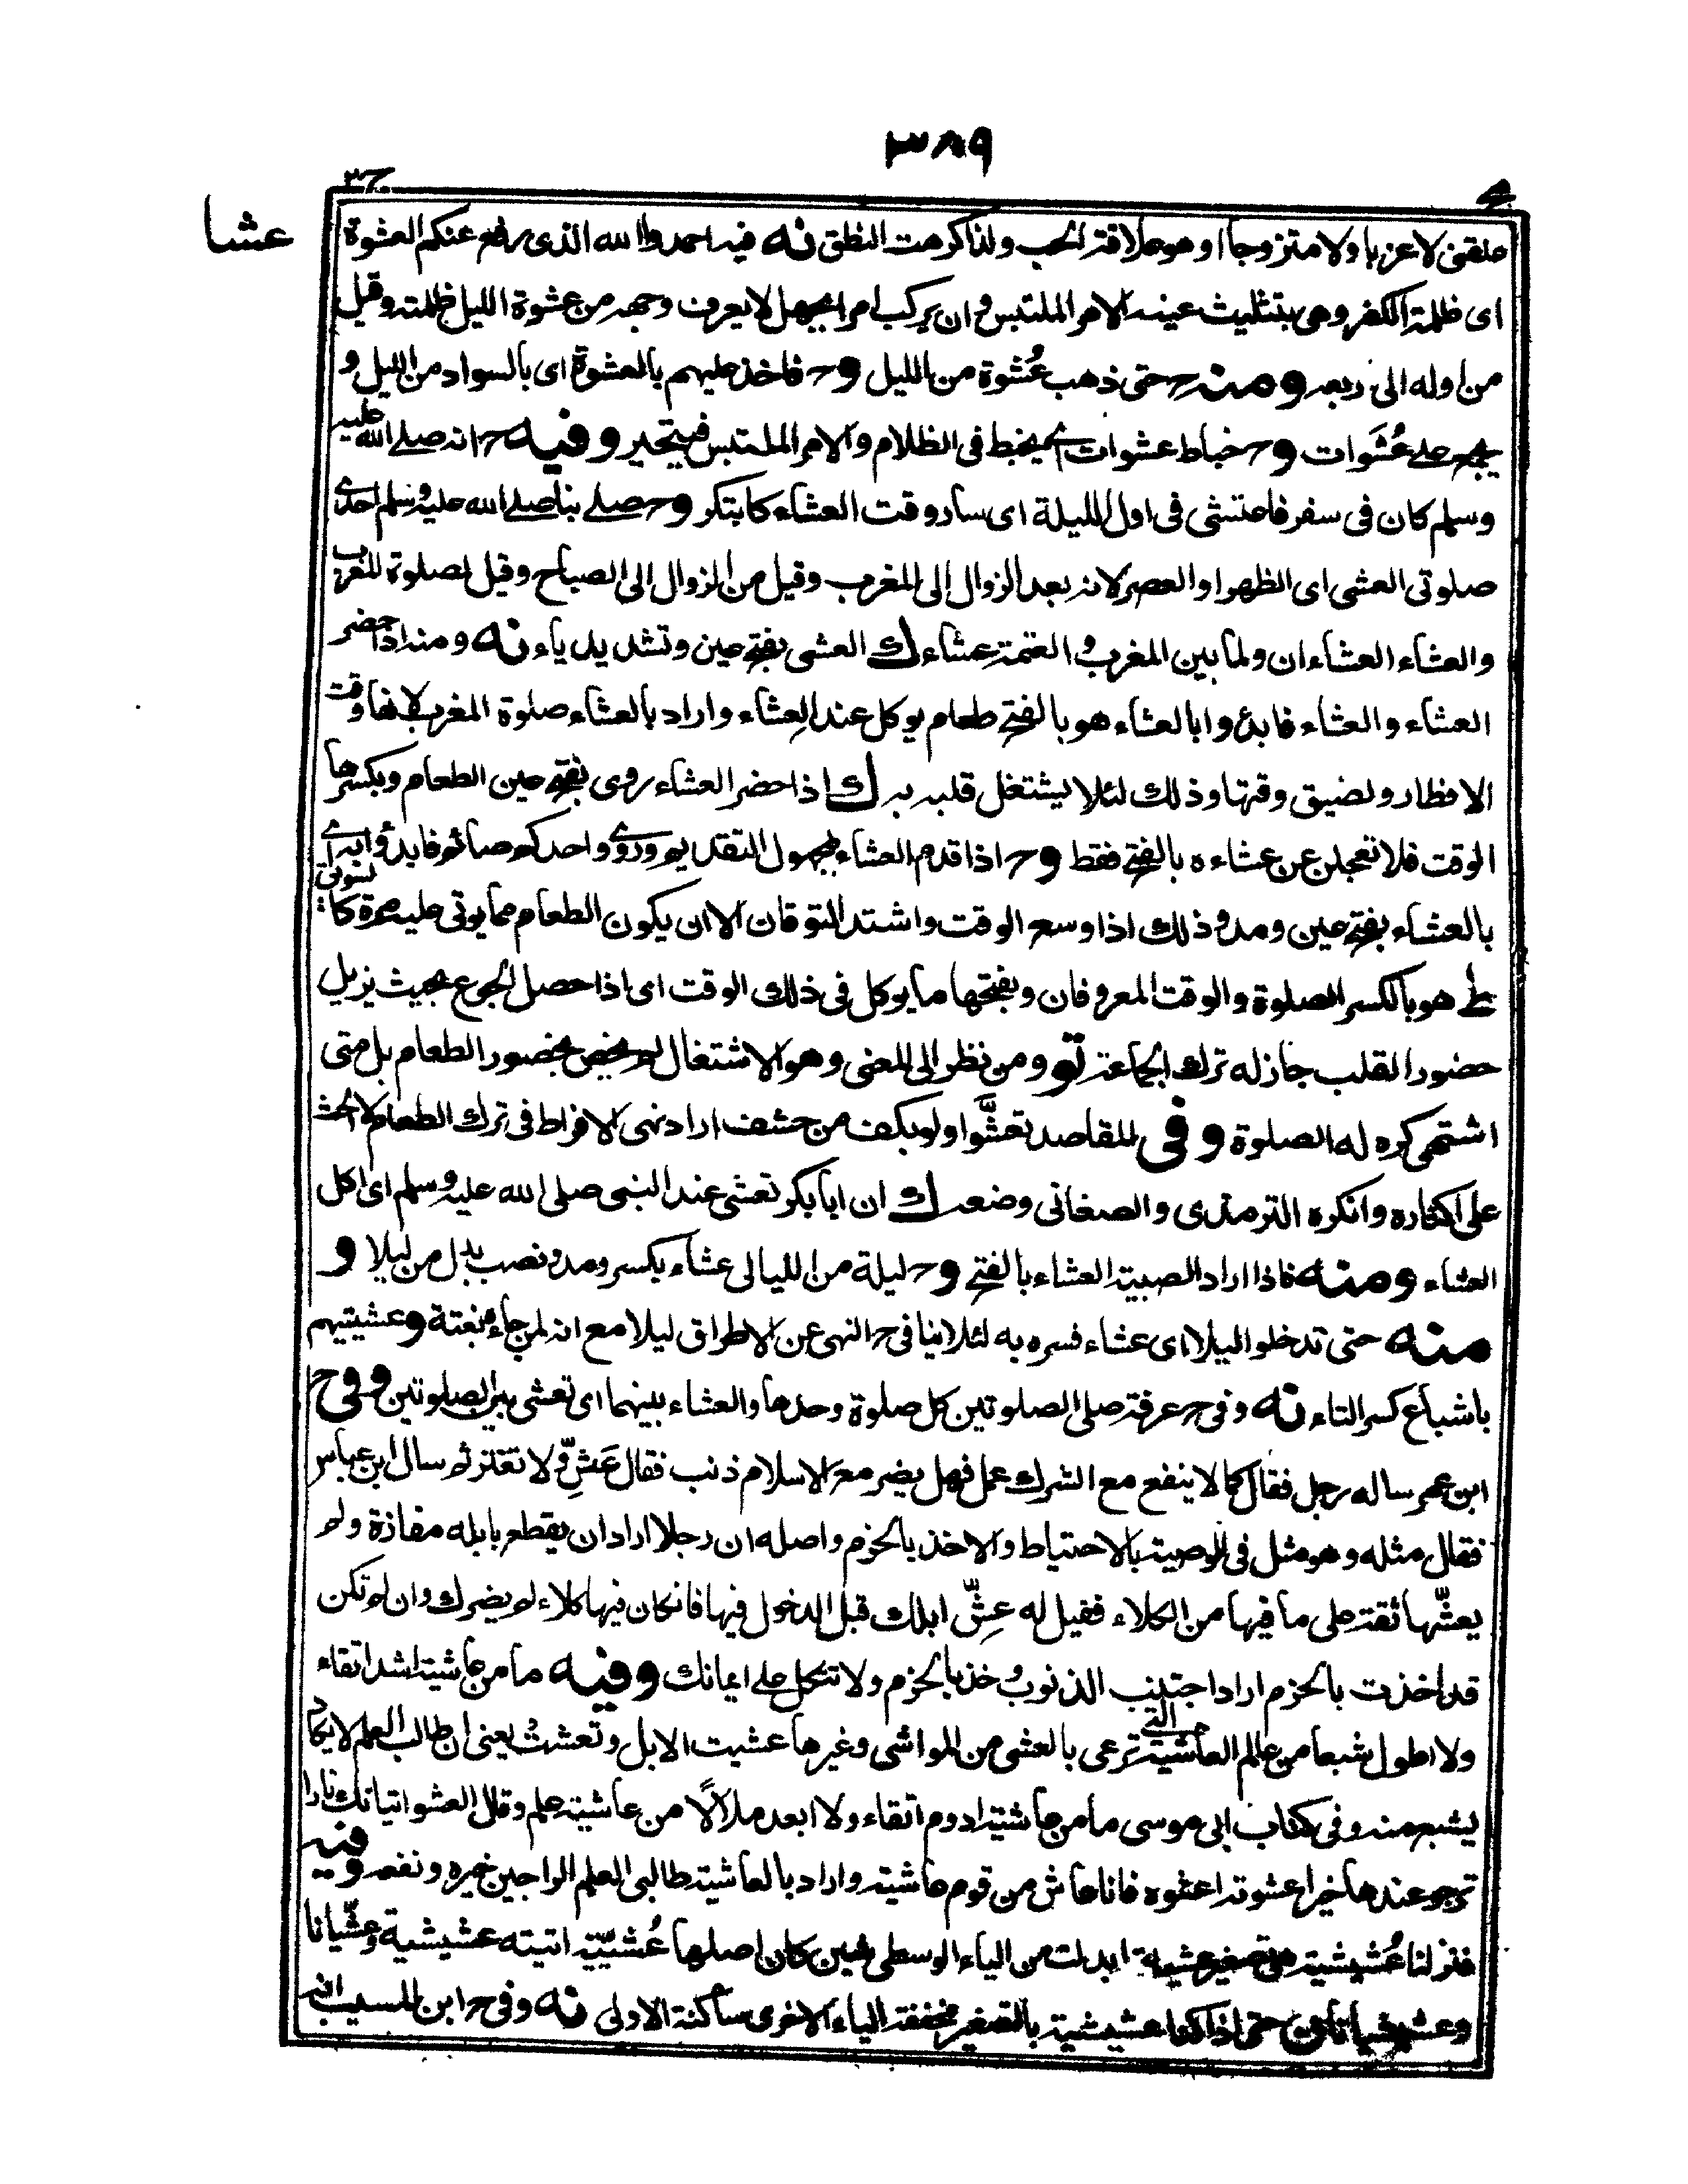 ٣٨٩
ج٣
عشا
علقنى لا عزبا ولا متزوجا او هو علاقة الحب ولذا كرهت النطق نه فيه احمدوا الله الذى رفع عنكم العشوة
اى ظلمة الكفر وهى بتثليث عينه الامر الملتبس وان يركب امرا بجهل لا يعرف وجهه من عشوة الليل ظلمته وقيل
من اوله الى ربعه ومنه ح حتى ذهب عُشوة من الليل وح فاخذ عليهم بالعشوة اى بالسواد من الليل و
يجمع على عُشَوات وح خباط عشوات اى يخبط فى الظلام والامر الملتبس فيتحير وفيه ح انه صلى الله عليه
وسلم كان فى سفر فاعتشى فى اول الليلة اى سار وقت العشاء كابتكر وح صلى بنا صلى الله عليه وسلم احدى
صلوتى العشى اى الظهر او العصر لانه بعد الزوال الى المغرب وقيل من الزوال الى الصباح وقيل لصلوة المغرب
والعشاء العشاءان ولما بين المغرب والعتمة عشاء ك العشى بفتح عين وتشديد ياء نه ومنه اذا حضر
العشاء والعشاء فابدؤا بالعشاء هو بالفتح طعام يوكل عند العِشاء واراد بالعشاء صلوة المغرب لانها وقت
الافطار ولضيق وقتها وذلك لئلا يشتغل قلبه به ك اذا حضر العشاء روى بفتح عين الطعام وبكسرها
الوقت فلا تعجلن عن عشاءه بالفتح فقط وح اذا قدم العشاء مجهول التقديم وروى واحدكم صائم فابدؤا به اى
بالعشاء بفتح عين ومد وذلك اذا وسع الوقت واشتد التوقان الا ان يكون الطعام مما يوتى عليه مرة كا
ط هو بالكسر الصلوة والوقت المعروفان وبفتحها ما يوكل فى ذلك الوقت اى اذا حصل الجوع بحيث يزيل
حضور القلب جاز له ترك الجماعة تو ومن نظر الى المعنى وهو الاشتغال لم يخص بحضور الطعام بل متى
اشتهى كره له الصلوة وفى المقاصد تعشَّوا ولو بكف من حشف اراد نهى الافراط فى ترك الطعام لا الحث
على اكثاره وانكره الترمذى والصغانى وضعه ك ان ابا بكر تعشى عند النبى صلى الله عليه وسلم اى اكل
العشاء ومنه فاذا اراد الصبية العشاء بالفتح وح ليلة من الليالى عشاء بكسر ومد ونصب بدل من ليلا و
منه حتى تدخلوا ليلا اى عشاء فسره به لئلا ينافى ح النهى عن الاطراق ليلا مع انه لمن جاء بغتة وعشيتيهم
باشباع كسر التاء نه وفى ح عرفة صلى الصلوتين كل صلوة وحدها والعشاء بينهما اى تعشى بين الصلوتين وفى ح
ابن عمر ساله رجل فقال كما لا ينفع مع الشرك عمل فهل يضر مع الاسلام ذنب فقال عَشِّ ولا تغتر ثم سال ابن عباس
فقال مثله وهو مثل فى الوصية بالاحتياط والاخذ بالحزم واصله ان رجلا اراد ان يقطع بابله مفازة ولم
يعشّها ثقة على ما فيها من الكلاء فقيل له عشِّ ابلك قبل الدخول فيها فان كان فيها كلاء لم يضرك وان لم تكن
قد اخذت بالحزم اراد اجتنب الذنوب وخذ بالحزم ولا تتكل على ايمانك وفيه ما من عاشية اشد اتقاء
ولا اطول شبعا من عالم العاشية التى ترعى بالعشى من المواشى وغيرها عشيت الابل وتعشت يعنى ان طالب العلم لا يكاد
يشبع منه وفى كتاب ابى موسى ما من عاشية ادوم اتقاء ولا ابعد ملالًا من عاشية علم وقال العشو اتيانك نارا
ترجو عندها خيرا عشوته اعشوه فانا عاش من قوم عاشية واراد بالعاشية طالبى العلم الراجين خيره ونفعه وفيه
فنزلنا عُشيشية هى تصغير عشية ابدلت من الياء الوسطى شين كان اصلها عُشيّية اتيته عشيشية وعشّيانا
بالتصغير مخففة الياء الاخرى ساكنة الاولى نه وفى ح ابن المسيب انه